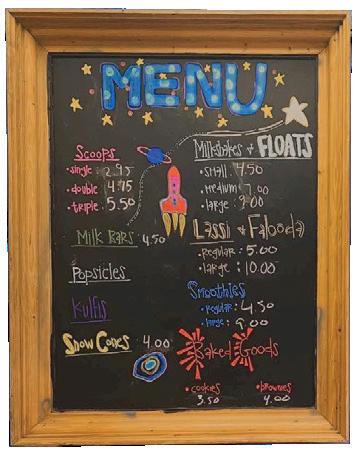 MENU
Scoops
• single : 2.95
• double : 4.75
• triple : 5.50
Milk Bars 4.50
Popsicles
Kulfis
Snow Cones 4.00
Milkshakes & FLOATS
• small : 4.50
• medium : 7.00
• large : 9.00
Lassi & Falooda
• Regular : 5.00
• large : 10.00
Smoothies
• Regular : 4.50
• large : 9.00
Baked Goods
• cookies
3.50
• brownies
4.00